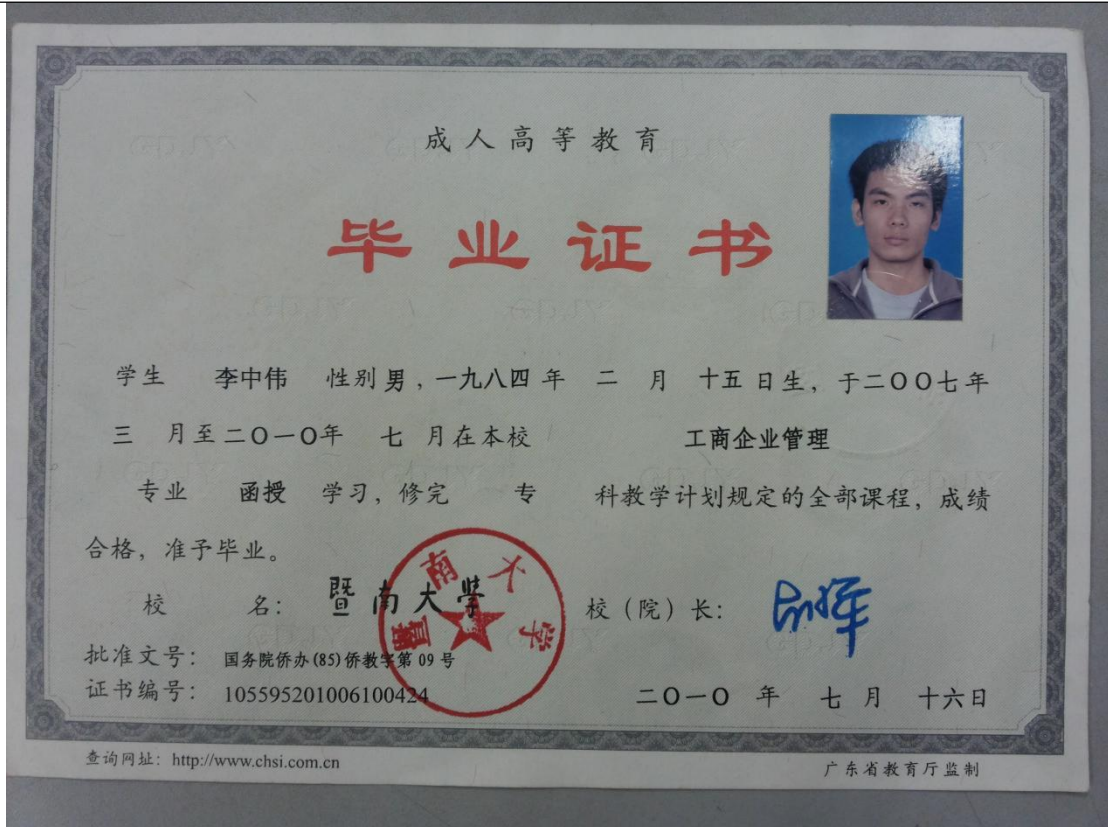 成人高等教育
毕业证书
学生 李中伟 性别 男，一九八四 年 二 月 十五 日生，于二〇〇七年
三 月至二〇一〇年 七 月在本校 工商企业管理
专业 函授 学习，修完 专 科教学计划规定的全部课程，成绩
合格，准予毕业。
校 名： 暨南大学 校（院）长：
暨南大学
批准文号： 国务院侨办(85)侨教字第 09 号
证书编号： 105595201006100424
二〇一〇 年 七 月 十六日
查询网址：http://www.chsi.com.cn
广东省教育厅监制